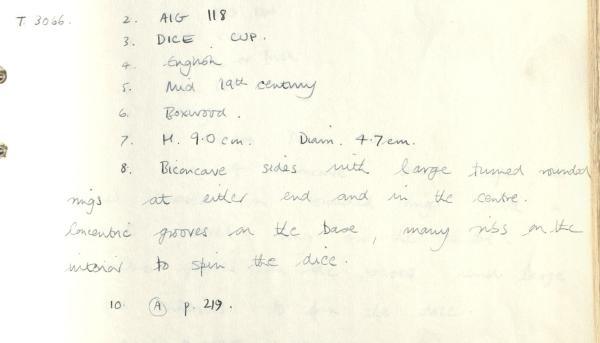 T. 3066. 2. AIG 118
3. DICE CUP.
4. English
5. Mid 19th century
6. Boxwood.
7. H. 9.0 cm. Diam. 4.7 cm.
8. Biconcave sides with large turned rounded
rings at either end and in the centre.
Concentric grooves on the base, many ribs on the
interior to spin the dice.
10. (A) p. 219.